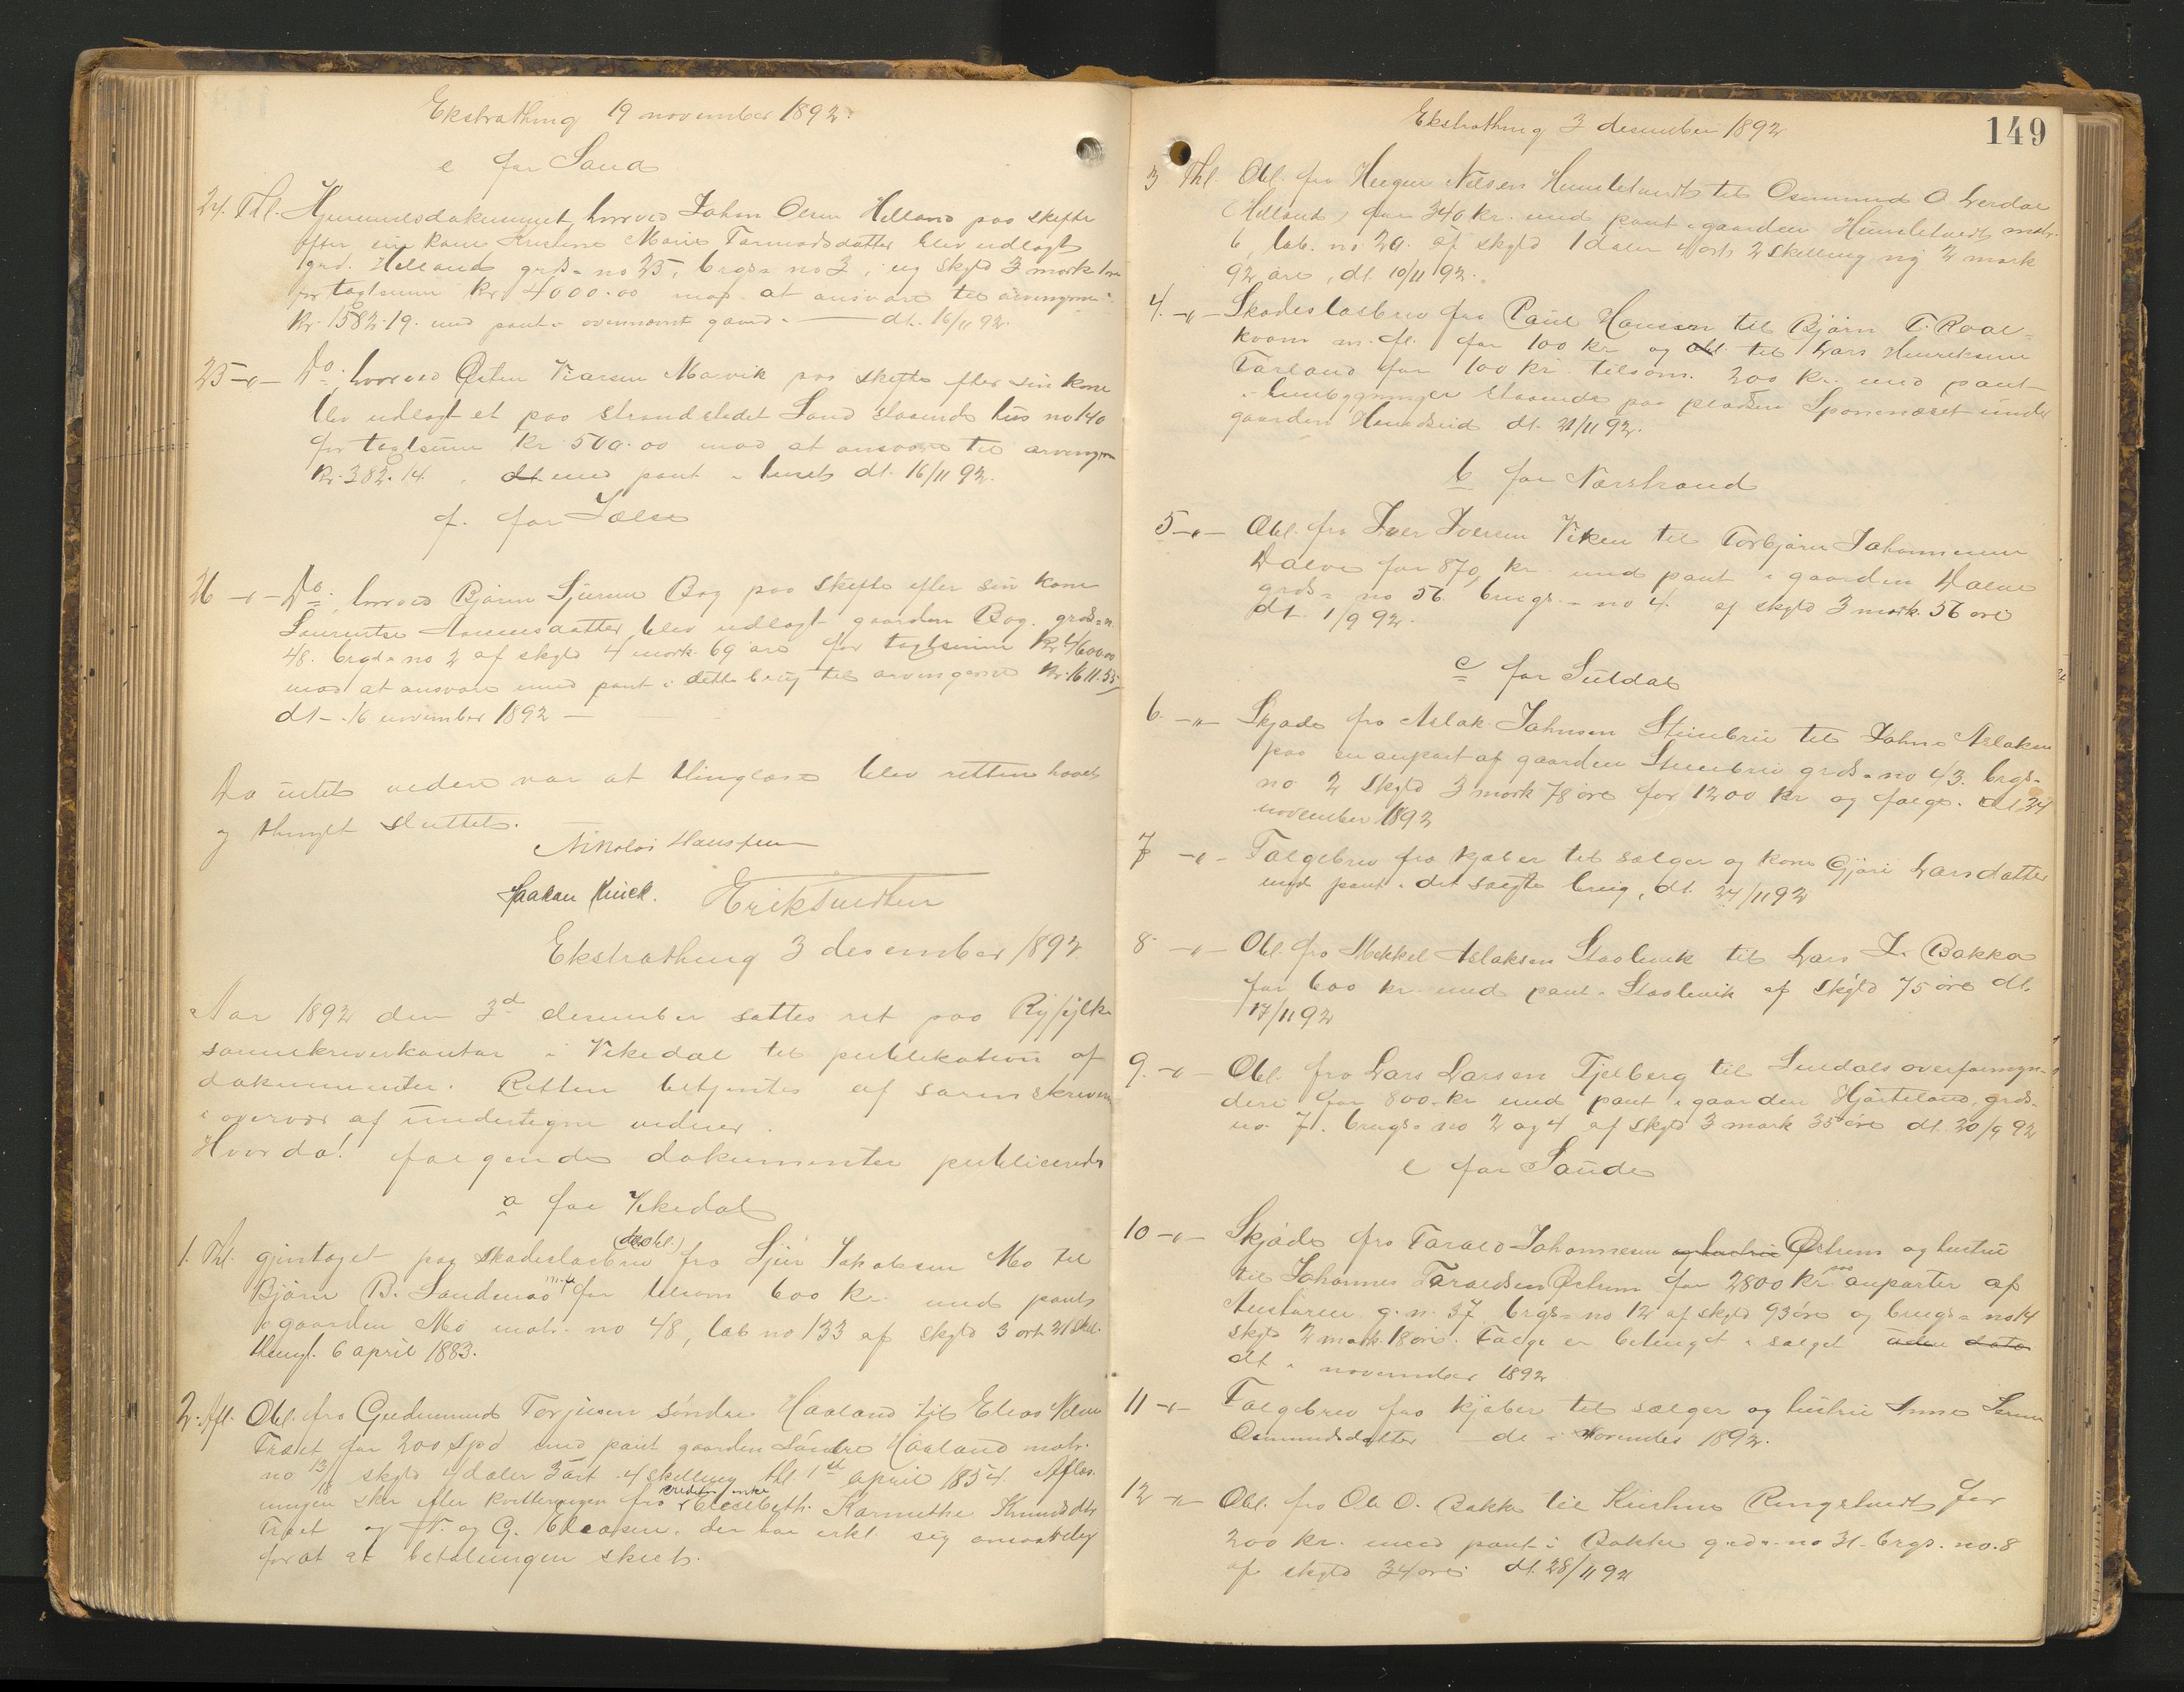 Ekstrathing 19 november 1892.
e for Sand
24. Thl. Hjemmelsdokument, hvorved John Olsen Helland paa skifte
efter sin kone Kristine Marie Tormodsdatter blev udlagt
grd. Helland grds- no 25, brgs- no 3, ny skyld 3 mork 1 øre
for taxtsum Kr 4000.00 mod at ansvare til arvingerne
Kr. 1582.19. med pant i ovennævnt gaard. — dt. 16/11 92.
25 -"- Do. hvorved Østen Marvik paa skifte efter sin kone
blev udlagt et paa strandstedet Sand staaende hus no 140
for taxtsum Kr 500.00 mod at ansvare til arvingerne
Kr. 382.14. dt. med pant i huset dt. 16/11 92.
f. for Jælse
26 -"- Do. hvorved Bjørn Sjursen Bog paa skifte efter sin kone
Lauritse blev udlagt gaarden Bog. grds- n.
48. brgd- no 2 af skyld 4 mork. 69 øre for taxtsum Kr 4600.00
mod at ansvare med pant i dette brug til arvingerne Kr. 1611.55
dt - 16 november 1892 —
Da intet videre var at thinglæse blev retten hævet
og thinget sluttet.
Nikolai Hansen
Haakon Kinck. Erik
Ekstrathing 3 desember 1892.
Aar 1892 den 3d desember sattes ret paa Ryfylke
sorenskriverkontor i Vikedal til publikation af
dokumenter. Retten betjentes af sorenskriveren
i overvær af undertegnede vidner.
Hvorda! følgende dokumenter publiceredes
a for Vikedal
1. Thl. gjentaget paa skadesløsbrev (do obl.) fra Sjur Jakobsen Mo til
Bjørn B. Sandenaa m. fl. for tilsam. 600 Kr. med pant
i gaarden Mo matr. no 48, løb no 133 af skyld 3 ort 21 skil.
thingl. 6 april 1883.
2. Afl. Obl. fra Gudmund Terjesen søndre Haaland til Elias
Træet for 200 Spd med pant gaarden søndre Haaland matr.
no 13/18 skyld 4 daler 3 ort 4 skilling thl. 1st april 1854. Afløs-
ningen sker efter kvitteringen fra kreditors enke Elisebeth Karmethe Knudsdtr
Træet og N. og G. Eliasen, der har erkl. sig ansvarlig
for at betalingen skeet.
Ekstrathing 3 desember 1892
149
3 Thl. Obl. fra Helgen Nilsen Humletvedt til Osmund O. Lerdal
(Helland) for 340 kr. med pant i gaarden Humletvedt matr.
6, løb. no 20. af skyld 1 daler 1 ort 2 skilling ny 2 mark
92 øre, dt. 10/11 92.
4. -"- Skadesløsbrev fra Paul Hansen til Bjørn T. Roal-
kvam m. fl. for 100 kr og obl. til Lars Henriksen
Førland for 100 kr tilsam. 200 kr. med pant
i husbygninger staaende paa pladsen Sponeneset under
gaarden Hamdseid dt. 21/11 92.
b for Nærstrand
5 -"- Obl. fra Iver Iversen Viken til Torbjørn Johannesen
Dalve for 870 kr. med pant i gaarden Dalve
grds- no 56. brugs- no 4. af skyld 3 mork. 56 øre
dt. 1/9 92.
c for Suldal
6. -"- Skjøde fra Aslak Johnsen Stenbru til John Aslaksen
paa en anpart af gaarden Stenbru grds- no 43. brgs-
no 2 skyld 3 mork 78 øre for 1200 kr og følge. dt. 24
november 1892
7 -"- Følgebrev fra kjøber til sælger og kone Gjøri Larsdatter
med pant i det solgte brug, dt. 24/11 92
8 -"- Obl. fra Mikkel Aslaksen Staalevik til Lars L. Bakka
for 600 kr med pant i Staalevik af skyld 75 øre dt.
17/11 92
9. -"- Obl. fra Lars Larsen Fjelberg til Suldals overformyn-
deri for 800 kr med pant i gaarden Hjørteland, grds-
no 7. brugs- no 2 og 4 af skyld 3 mark 35 øre dt. 20/9 92
e for Saude
10 -"- Skjøde fra Tarald Johannesen og hustru Østrem og hustru
til Johannes Taraldsen Østrem for 2800 kr paa anparter af
Austaren g. n. 37 brgs- no 12 af skyld 93 øre og brugs- no 14
skyld 2 mark. 18 øre. Følge er betinget i salget uden dato
dt i november 1892
11 -"- Følgebrev fra kjøber til sælger og hustru Anne
Osmundsdatter dt i november 1892.
12 -"- Obl. fra Ole O. Bakke til Kristine Ringstvedt for
200 kr. med pant i Bakke grds- no 31. brgs. no. 8
af skyld 34 øre dt. 28/11 92